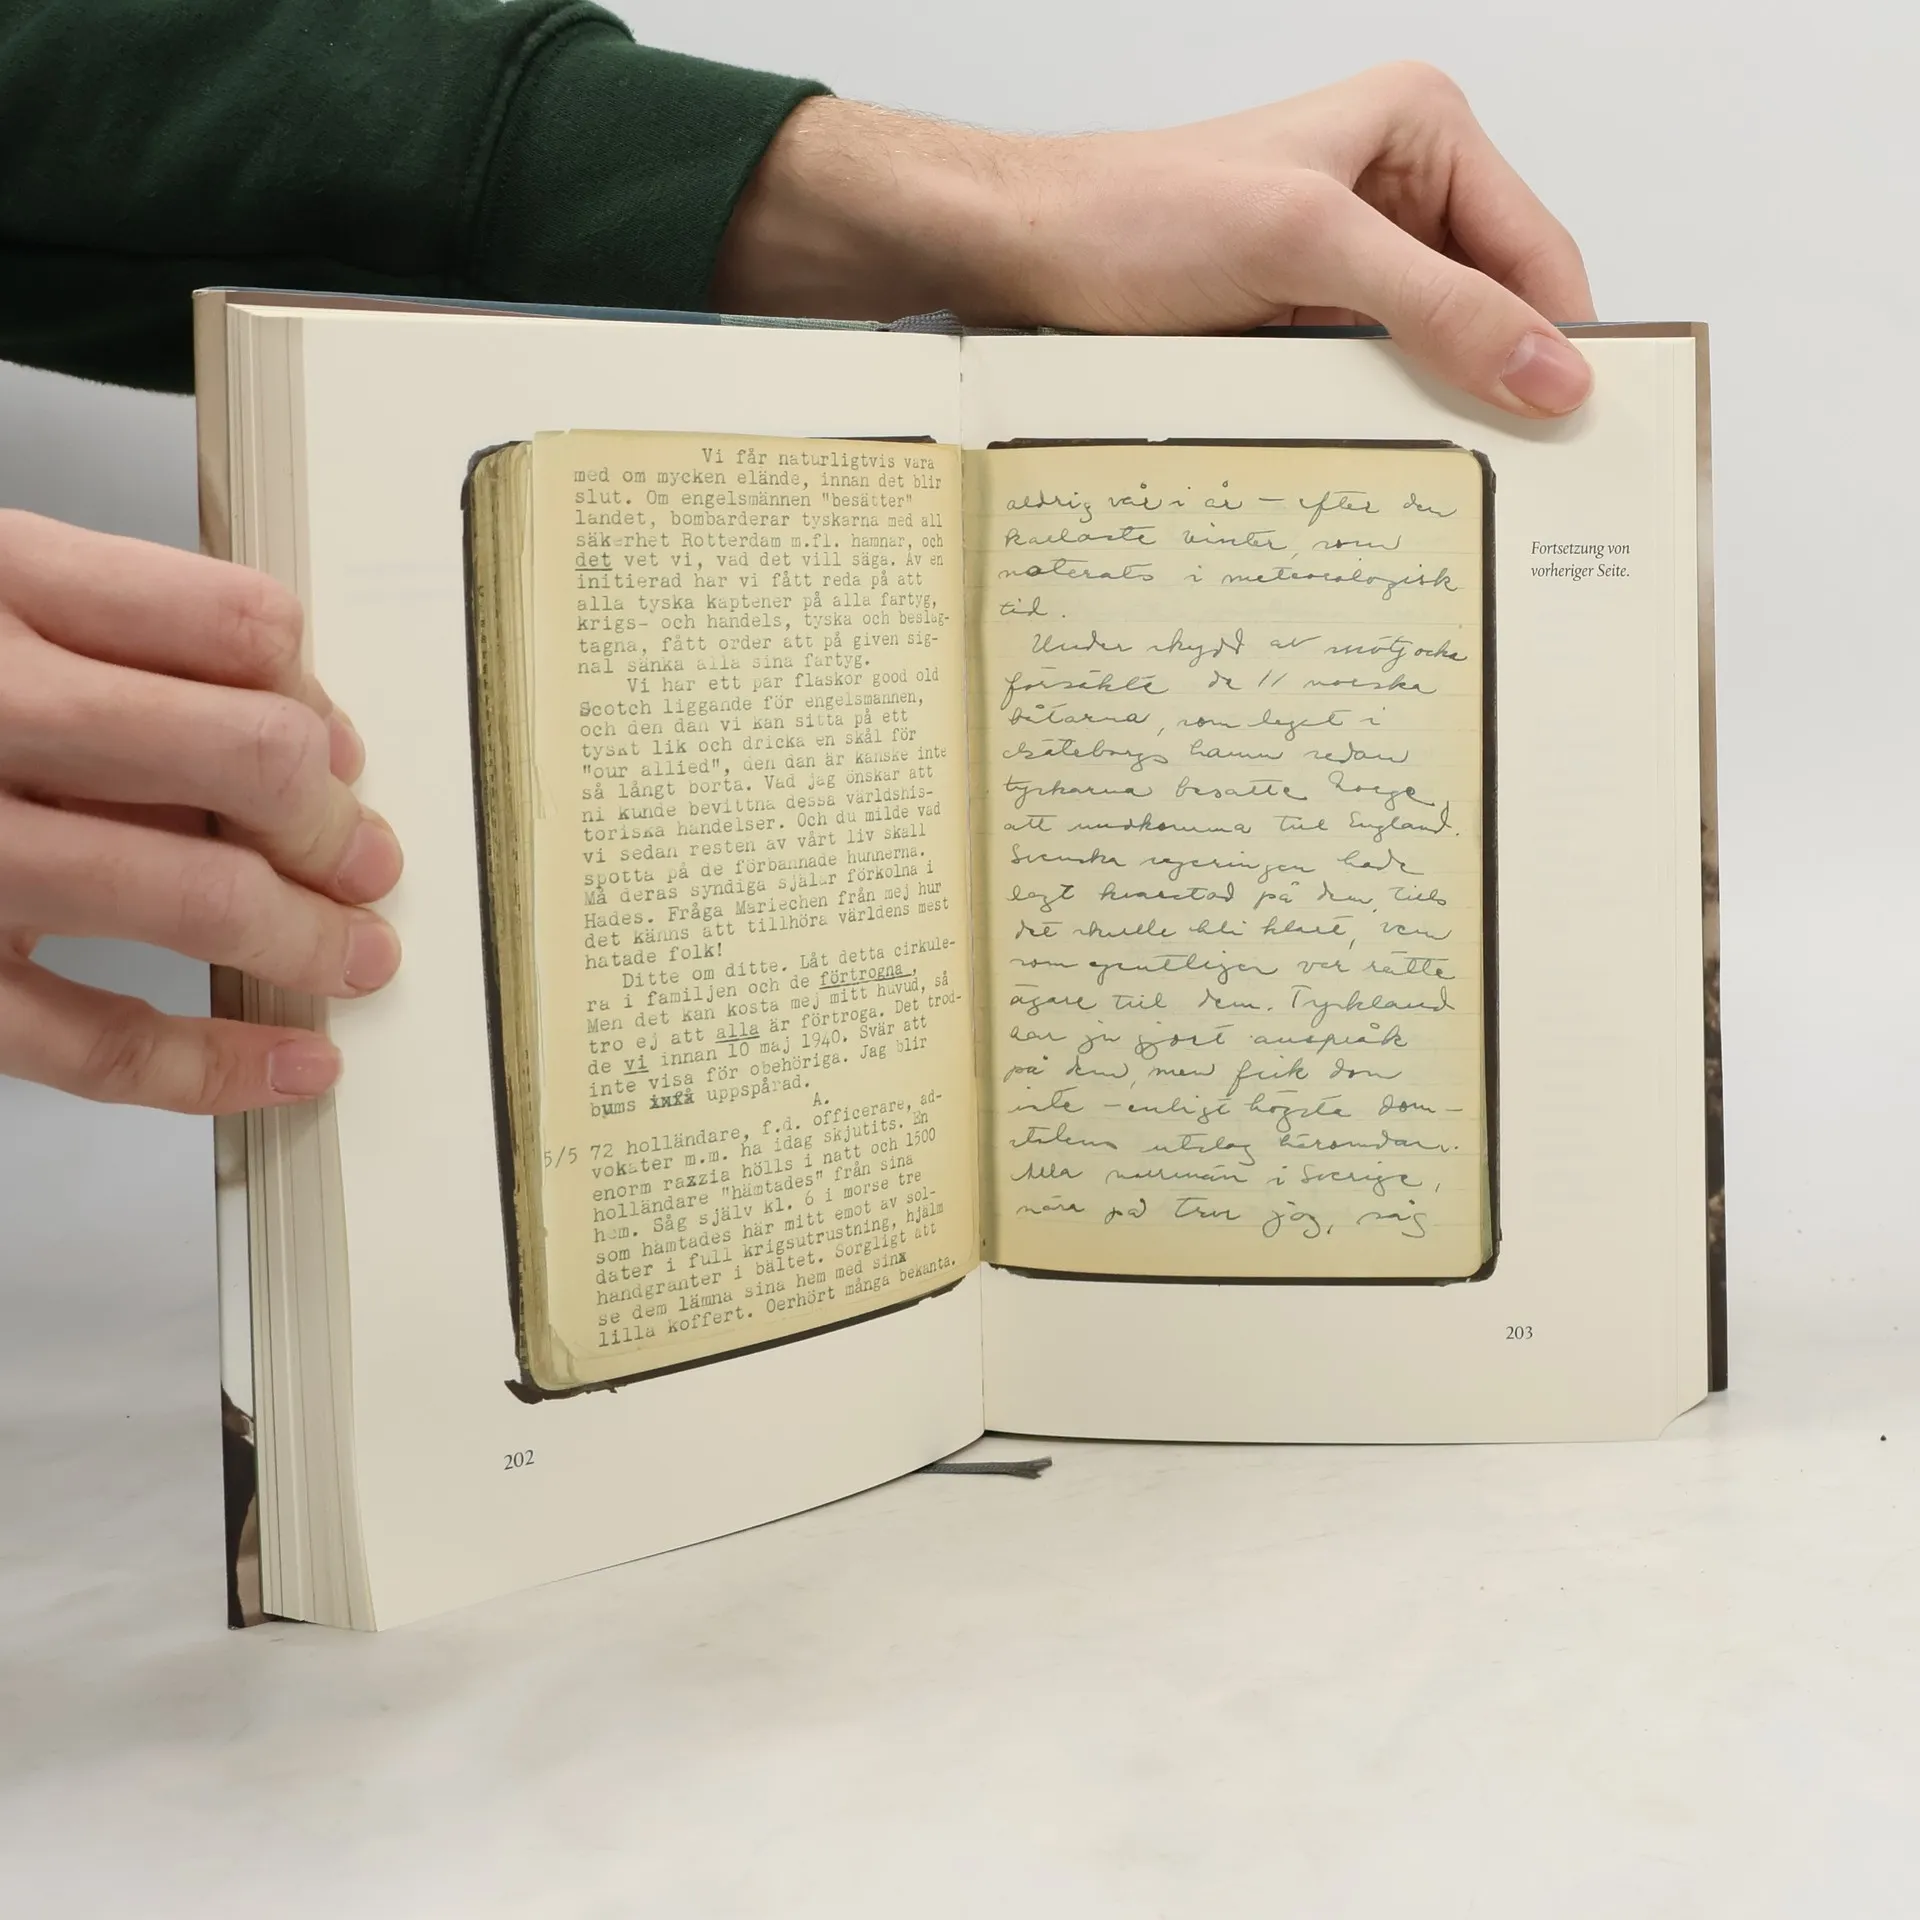 Vi får naturligtvis vara
med om mycken elände, innan det blir
slut. Om engelsmännen "besätter"
landet, bombarderar tyskarna med all
säkerhet Rotterdam m.fl. hamnar, och
det vet vi, vad det vill säga. Av en
initierad har vi fått reda på att
alla tyska kaptener på alla fartyg,
krigs- och handels, tyska och beslag-
tagna, fått order att på given sig-
nal sänka alla sina fartyg.
Vi har ett par flaskor good old
Scotch liggande för engelsmännen,
och den dan vi kan sitta på ett
tyskt lik och dricka en skål för
"our allied", den dan är kanske inte
så långt borta. Vad jag önskar att
ni kunde bevittna dessa världshis-
toriska händelser. Och du milde vad
vi sedan resten av vårt liv skall
spotta på de förbannade hunnerna.
Må deras syndiga själar förkolna i
Hades. Fråga Mariechen från mej hur
det känns att tillhöra världens mest
hatade folk!
Ditte om ditte. Låt detta cirkule-
ra i familjen och de förtrogna,
Men det kan kosta mej mitt huvud, så
tro ej att alla är förtroga. Det trod-
de vi innan 10 maj 1940. Svär att
inte visa för obehöriga. Jag blir
bums uppspårad.
A.
5/5 72 holländare, f.d. officerare, ad-
vokater m.m. ha idag skjutits. En
enorm raxzia hölls i natt och 1500
holländare "hämtades" från sina
hem. Såg själv kl. 6 i morse tre
som hämtades här mitt emot av sol-
dater i full krigsutrustning, hjälm
handgranter i bältet. Sorgligt att
se dem lämna sina hem med sinx
lilla koffert. Oerhört många bekanta.
202
aldrig vår i år – efter den
kallaste vinter, som
noterats i meteorologisk
tid.
Under skydd av snötjocka
försökte de 11 norska
båtarna, som legat i
Göteborgs hamn sedan
tyskarna besatte Norge,
att undkomma till England.
Svenska regeringen hade
lagt kvarstad på dem, tills
det skulle bli klart, vem
som egentligen var rätte
ägare till dem. Tyskland
har ju gjort anspråk
på dem, men fick dom
inte – enligt högsta dom-
stolens utslag häromdan.
Alla norrmän i Sverige,
nära på tror jag, såg
Fortsetzung von
vorheriger Seite.
203